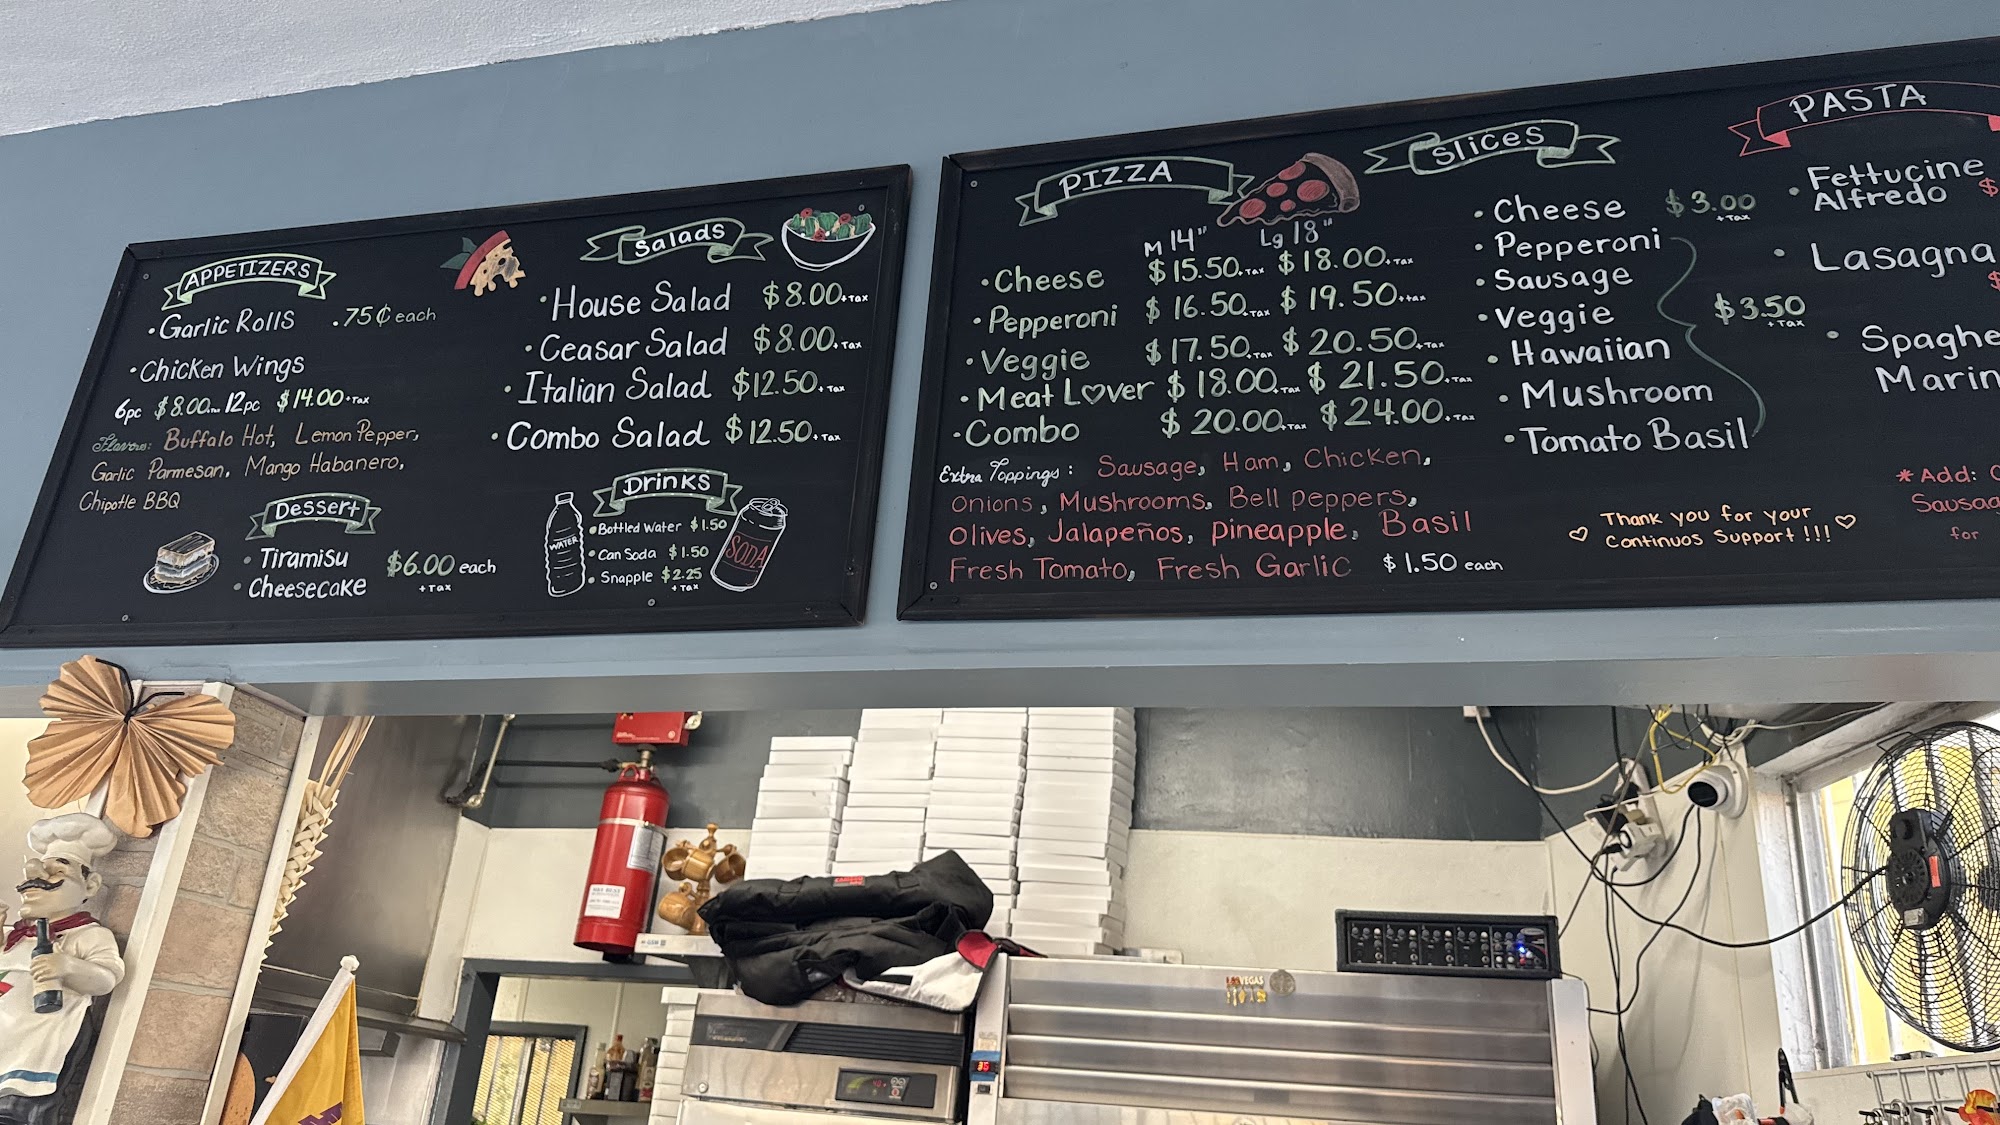 APPETIZERS
• Garlic Rolls .75¢ each
• Chicken Wings
6pc $8.00 +Tax 12pc $14.00 +Tax
Flavors: Buffalo Hot, Lemon Pepper,
Garlic Parmesan, Mango Habanero,
Chipotle BBQ
Dessert
• Tiramisu
• Cheesecake
$6.00 each
+Tax
Salads
• House Salad $8.00 +Tax
• Ceasar Salad $8.00 +Tax
• Italian Salad $12.50 +Tax
• Combo Salad $12.50 +Tax
Drinks
• Bottled Water $1.50
• Can Soda $1.50
• Snapple $2.25
+Tax
WATER
SODA
PIZZA
M 14" Lg 18"
• Cheese $15.50 +Tax $18.00 +Tax
• Pepperoni $16.50 +Tax $19.50 +tax
• Veggie $17.50 +Tax $20.50 +Tax
• Meat L♡ver $18.00 +Tax $21.50 +Tax
• Combo $20.00 +Tax $24.00 +Tax
Extra Toppings: Sausage, Ham, Chicken,
Onions, Mushrooms, Bell peppers,
Olives, Jalapeños, pineapple, Basil
Fresh Tomato, Fresh Garlic $1.50 each
Slices
• Cheese $3.00
+Tax
• Pepperoni
• Sausage
• Veggie
• Hawaiian
• Mushroom
• Tomato Basil
$3.50
+Tax
♡ Thank you for your ♡
Continuos Support!!!
PASTA
• Fettucine
Alfredo $
• Lasagna
$
• Spaghe
Marin
* Add:
Sausag
for
LAS VEGAS